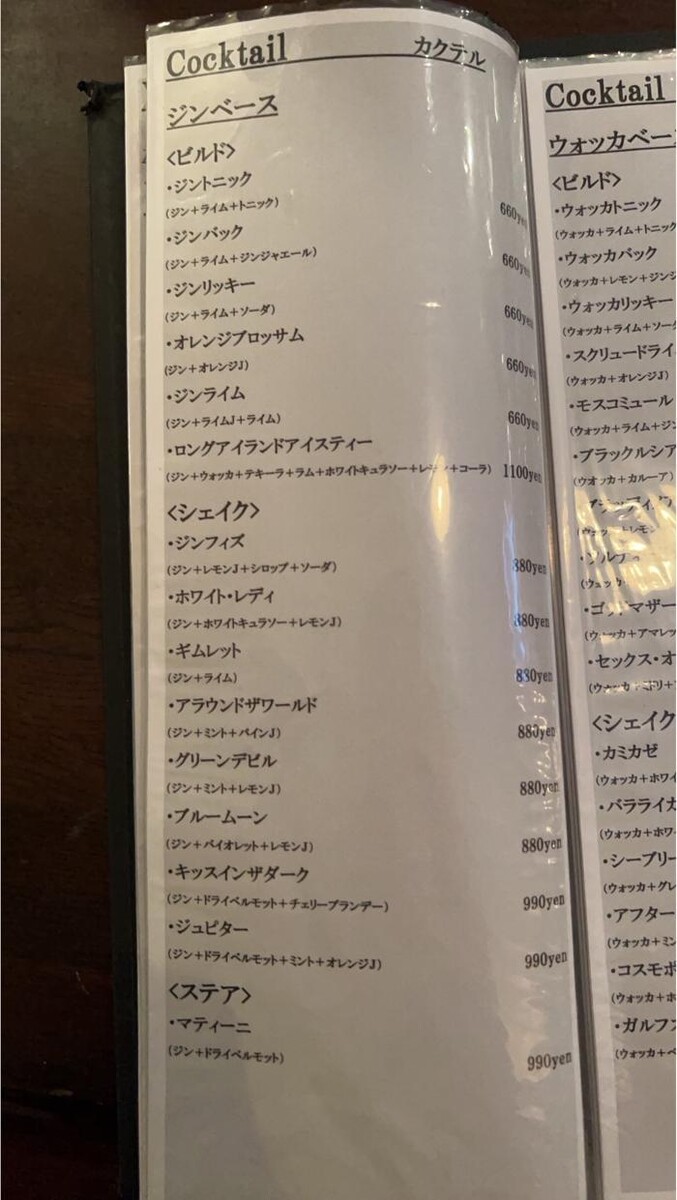 Cocktail カクテル
ジンベース
<ビルド>
・ジントニック
(ジン+ライム+トニック) 660yen
・ジンバック
(ジン+ライム+ジンジャエール) 660yen
・ジンリッキー
(ジン+ライム+ソーダ) 660yen
・オレンジブロッサム
(ジン+オレンジJ) 660yen
・ジンライム
(ジン+ライムJ+ライム) 660yen
・ロングアイランドアイスティー
(ジン+ウォッカ+テキーラ+ラム+ホワイトキュラソー+レモン+コーラ) 1100yen
<シェイク>
・ジンフィズ
(ジン+レモンJ+シロップ+ソーダ) 880yen
・ホワイト・レディ
(ジン+ホワイトキュラソー+レモンJ) 880yen
・ギムレット
(ジン+ライム) 880yen
・アラウンドザワールド
(ジン+ミント+パインJ) 880yen
・グリーンデビル
(ジン+ミント+レモンJ) 880yen
・ブルームーン
(ジン+バイオレット+レモンJ) 880yen
・キッスインザダーク
(ジン+ドライベルモット+チェリーブランデー) 990yen
・ジュピター
(ジン+ドライベルモット+ミント+オレンジJ) 990yen
<ステア>
・マティーニ
(ジン+ドライベルモット) 990yen
Cocktail
ウォッカベー
<ビルド>
・ウォッカトニック
(ウォッカ+ライム+トニック
・ウォッカバック
(ウォッカ+レモン+ジン
・ウォッカリッキー
(ウォッカ+ライム+ソー
・スクリュードライ
(ウォッカ+オレンジJ)
・モスコミュール
(ウォッカ+ライム+ジン
・ブラックルシア
(ウオッカ+カルーア)
・ゴッドマザー
(ウォッカ+アマレッ
・セックス・オ
(ウォッカ+ミドリ+
<シェイク
・カミカゼ
(ウォッカ+ホワイ
・バラライカ
(ウォッカ+ホワ
・シーブリー
(ウォッカ+グレ
・アフター
(ウォッカ+ミン
・コスモポ
(ウォッカ+ホ
・ガルフス
(ウォッカ+ペ